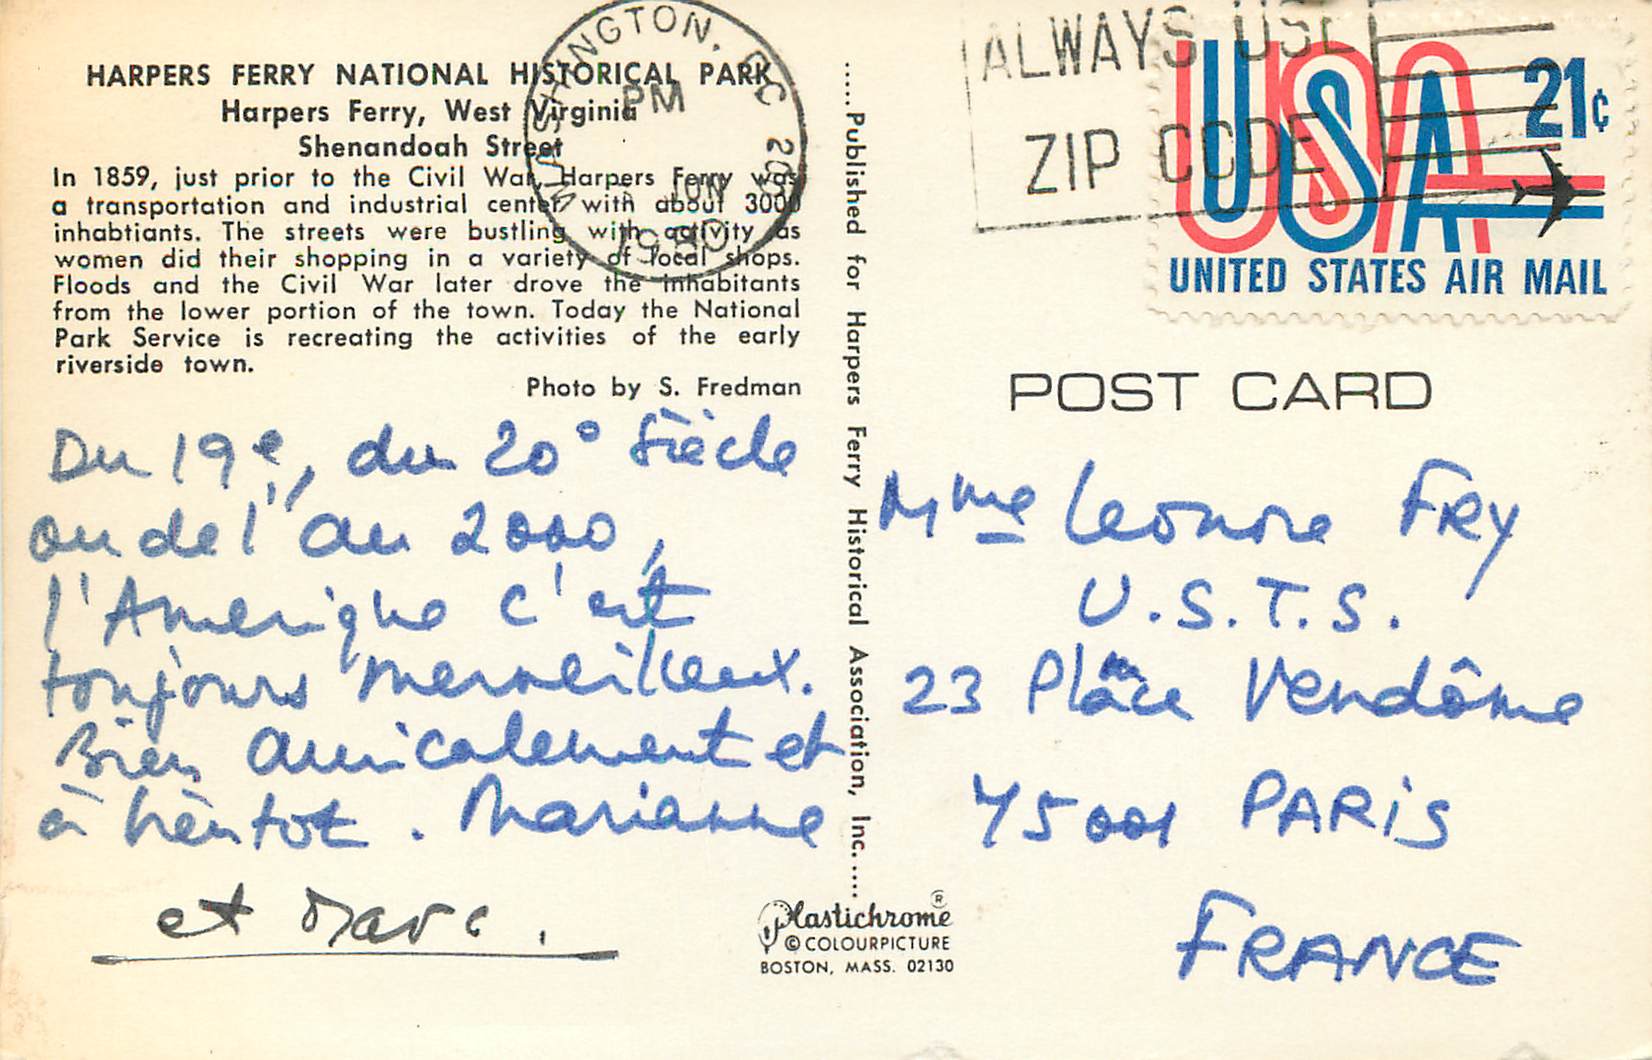 HARPERS FERRY NATIONAL HISTORICAL PARK
Harpers Ferry, West Virginia
Shenandoah Street
In 1859, just prior to the Civil War, Harpers Ferry was
a transportation and industrial center with about 3000
inhabtiants. The streets were bustling with activity as
women did their shopping in a variety of local shops.
Floods and the Civil War later drove the inhabitants
from the lower portion of the town. Today the National
Park Service is recreating the activities of the early
riverside town.
Photo by S. Fredman
Du 19e, du 20° siècle
ou de l'an 2000,
l'Amerique c'est
toujours merveilleux.
Bien amicalement et
à bientot. Marianne
et Marc.
.....Published for Harpers Ferry Historical Association, Inc.....
Plastichrome ®
© COLOURPICTURE
BOSTON, MASS. 02130
WASHINGTON, DC 200
PM
JUN
1980
ALWAYS USE
ZIP CODE
USA 21¢
UNITED STATES AIR MAIL
POST CARD
Mme Leonore FRY
U.S.T.S.
23 Place Vendôme
75001 PARIS
FRANCE